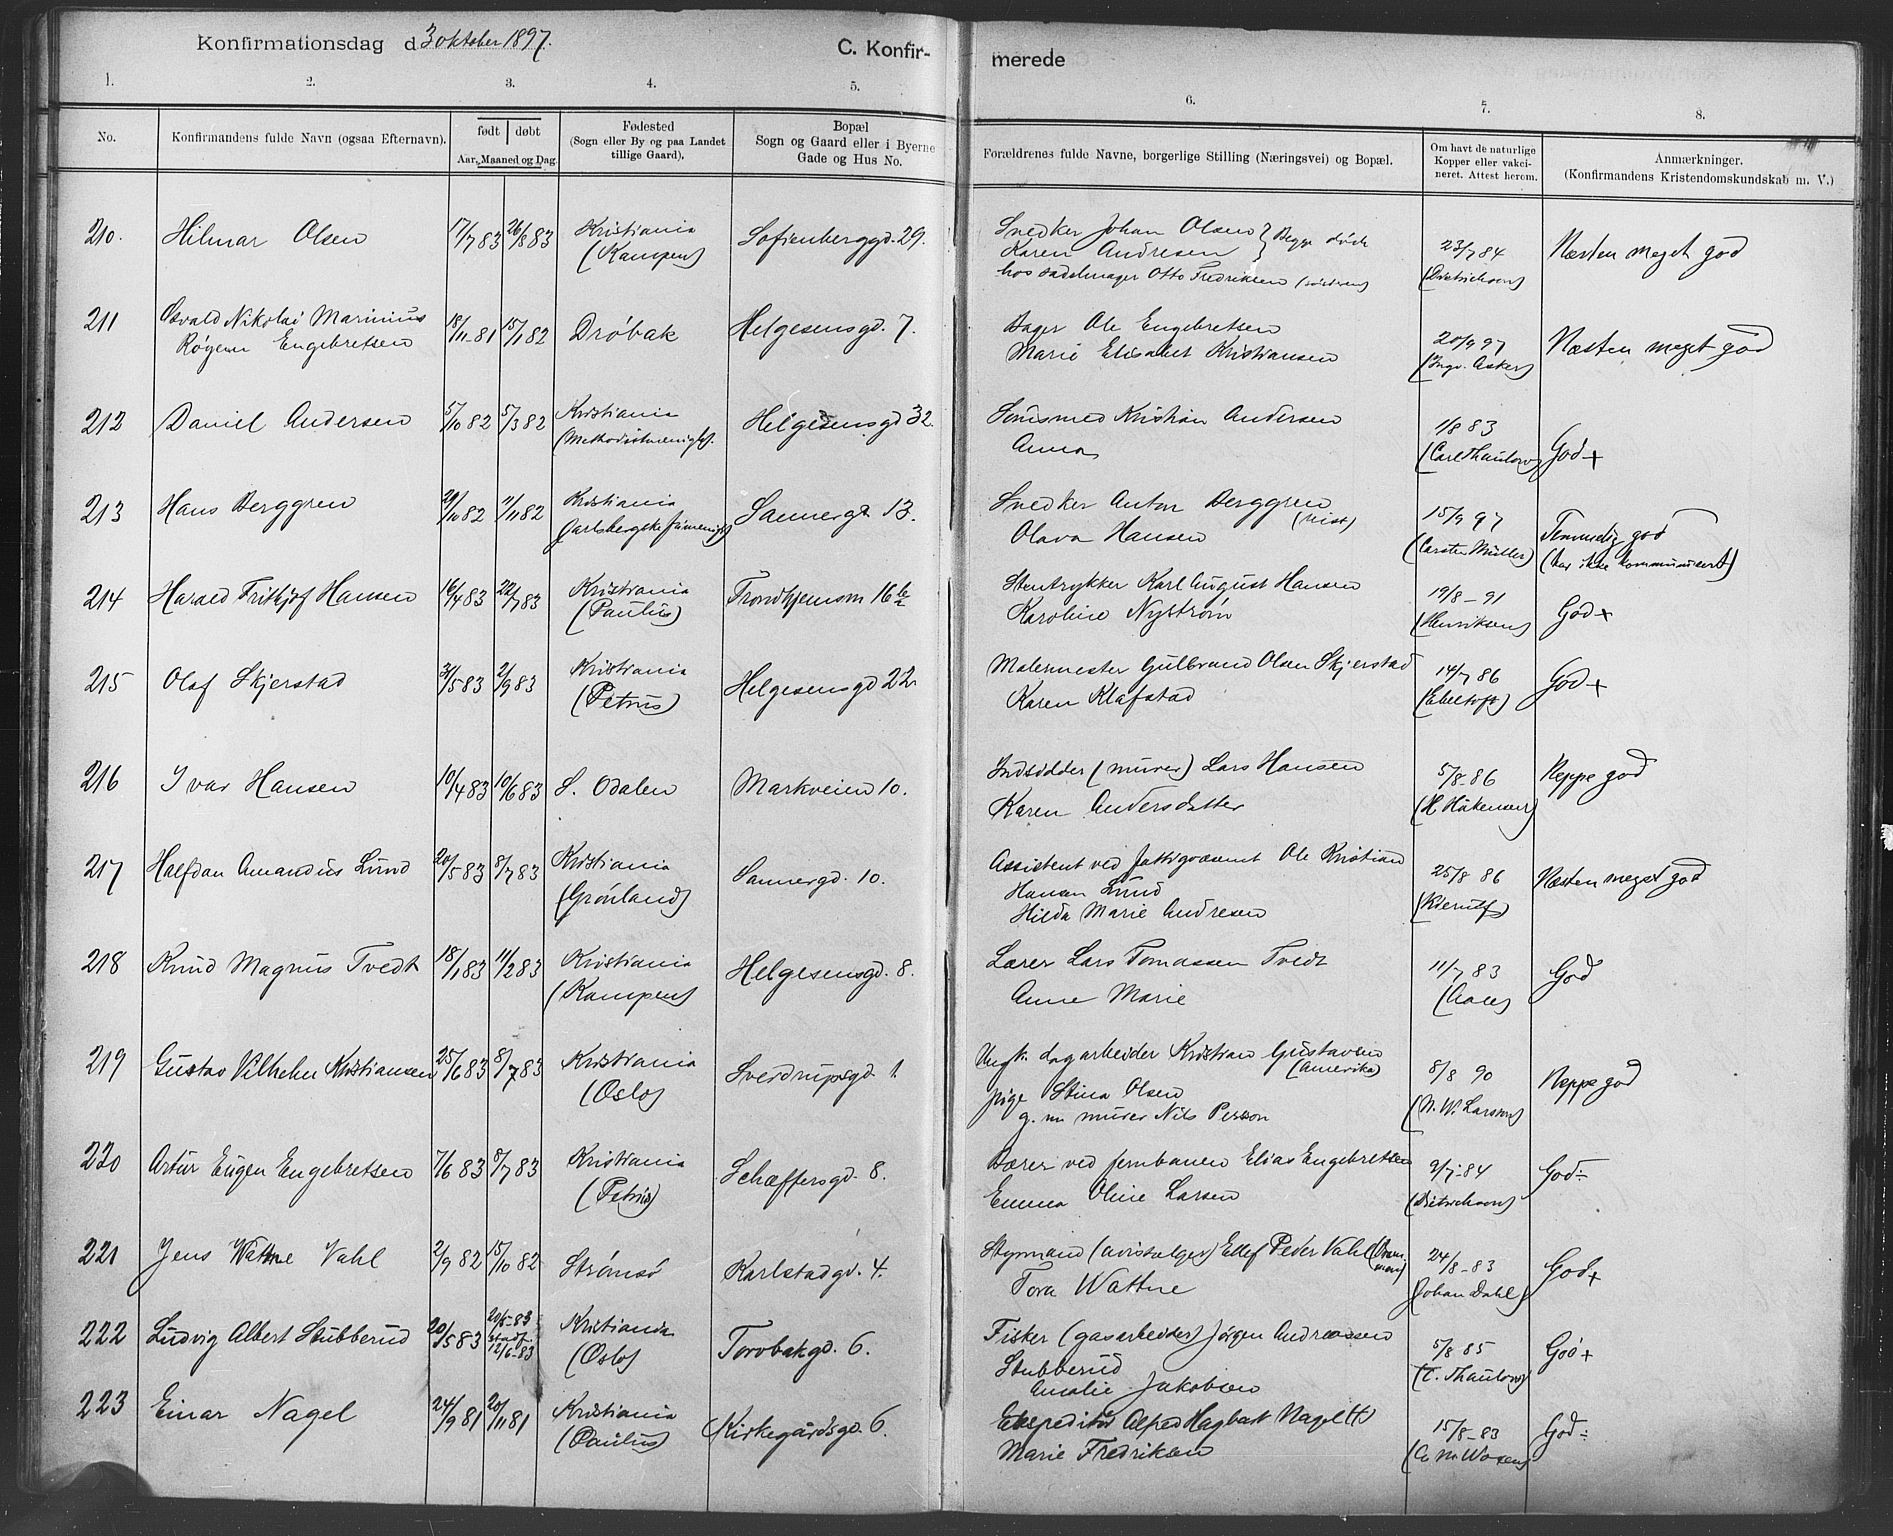 Konfirmationsdag d. 3 oktober 1897.
C. Konfir-
merede
1. 2. 3. 4. 5. 6. 7. 8.
No.
Konfirmandens fulde Navn (ogsaa Efternavn).
født døbt
Aar, Maaned og Dag.
Fødested
(Sogn eller By og paa Landet
tillige Gaard).
Bopæl
Sogn og Gaard eller i Byerne
Gade og Hus No.
Forældrenes fulde Navne, borgerlige Stilling (Næringsvei) og Bopæl.
Om havt de naturlige
Kopper eller vakci-
neret. Attest herom.
Anmærkninger.
(Konfirmandens Kristendomskundskab m. V.)
210. Hilmar Olsen 17/7 83 26/8 83 Kristiania
(Kampen)
Sofienberggd. 29.
Snedker Johan Olsen } Begge døde
Karen Andresen
hos sadelmager Otto Fredriksen
23/7 84
(Dietrichson)
Næsten meget god
211 Osvald Nikolai Marinius
Røyem Engebretsen
18/11-81 15/1 82 Drøbak Helgesensgd. 7.
Bager Ole Engebretsen
Marie Elisabet Kristiansen
20/9 97
(Ingv. Asker)
Næsten meget god
212 Daniel Andersen 5/10 82 5/3 82 Kristiania
(Methodistmenighf.
Helgesensgd 32.
Kristian Andersen
Anna
1/8 83
(Carl Thaulow)
God +
213 Hans Berggren 29/10 82 11/11 82 Kristiania
Jarlsbergske frimenigh)
Sannergt 13.
Snedker Anton Berggren
Olava Hansen
15/9 97
(Carsten Müller)
Temmelig god
(har ikke kommuniceret)
214 Harald Fritjof Hansen 16/4 83 22/7 83 Kristiania
(Paulus)
Trondhjemsm 16 b
Stentrykker Karl August Hansen
Karoline Nystrøm
19/8-91
(Henriksen)
God +
215 Olaf Skjerstad 31/5 83 2/9 83 Kristiania
(Petrus)
Helgesensgd 22
Malermester Gulbrand Olsen Skjerstad
Karen Klafstad
14/7 86
(Ebeltoft)
God +
216 Ivar Hansen 10/4 83 10/6 83 S. Odalen Markveien 10.
Indsidder (murer) Lars Hansen
Karen Andersdatter
5/8-86
(H. Håkensen)
Neppe god
217 Halfdan Amandus Lund 20/5 83 8/7 83 Kristiania
(Grønland)
Sannergd. 10.
Assistent ved fattigvæsenet Ole Kristian
Hansen Lund
Hilda Marie Andresen
25/8 86
(Kierulf)
Næsten meget god
218 Knud Magnus Tvedt 18/1 83 11/2 83 Kristiania
(Kampen)
Helgesensgd. 8.
Lærer Lars Tomassen Tvedt
Anne Marie
11/7 83
God
219 Gustav Vilhelm Kristiansen 25/6 83 8/7 83 Kristiania
(Oslo)
Sverdrupsgd. 1.
Ungk. dagarbeider Kristian Gustavsen
(Amerika)
pige Stina Olsen
g. m. murer Nils Persson
8/8 90
(N. W. Larsson)
Neppe god
220 Artur Eugen Engebretsen 7/6 83 8/7 83 Kristiania
(Petrus)
Schæffersgd. 8.
Bærer ved jernbanen Elias Engebretsen
Emma Oline Larsen
2/7-84
(Dietrichson)
God ÷
221 Jens Wattne Vahl 2/9 82 15/10 82 Strømsø Karlstadgd. 4.
Styrmand (avissælger) Ellef Peder Vahl (Dram-
men)
Tora Wattne
24/8-83
(Johan Dahl)
God +
222 Ludvig Albert Stubberud 20/5 83 20/5-83
stadf.
12/6-83
Kristiania
(Oslo)
Torvbakgd. 6.
Fisker (gasarbeider) Jørgen Andreassen
Stubberud
Amalie Jakobsen
5/8 85
(C. Thaulow)
God +
223 Einar Nagel 24/9 81 20/11 81 Kristiania
(Paulus)
Kirkegårdsgd. 6.
Ekspeditør Alfred Hagbart Nagel (†)
Marie Fredriksen
15/8-83
God ÷